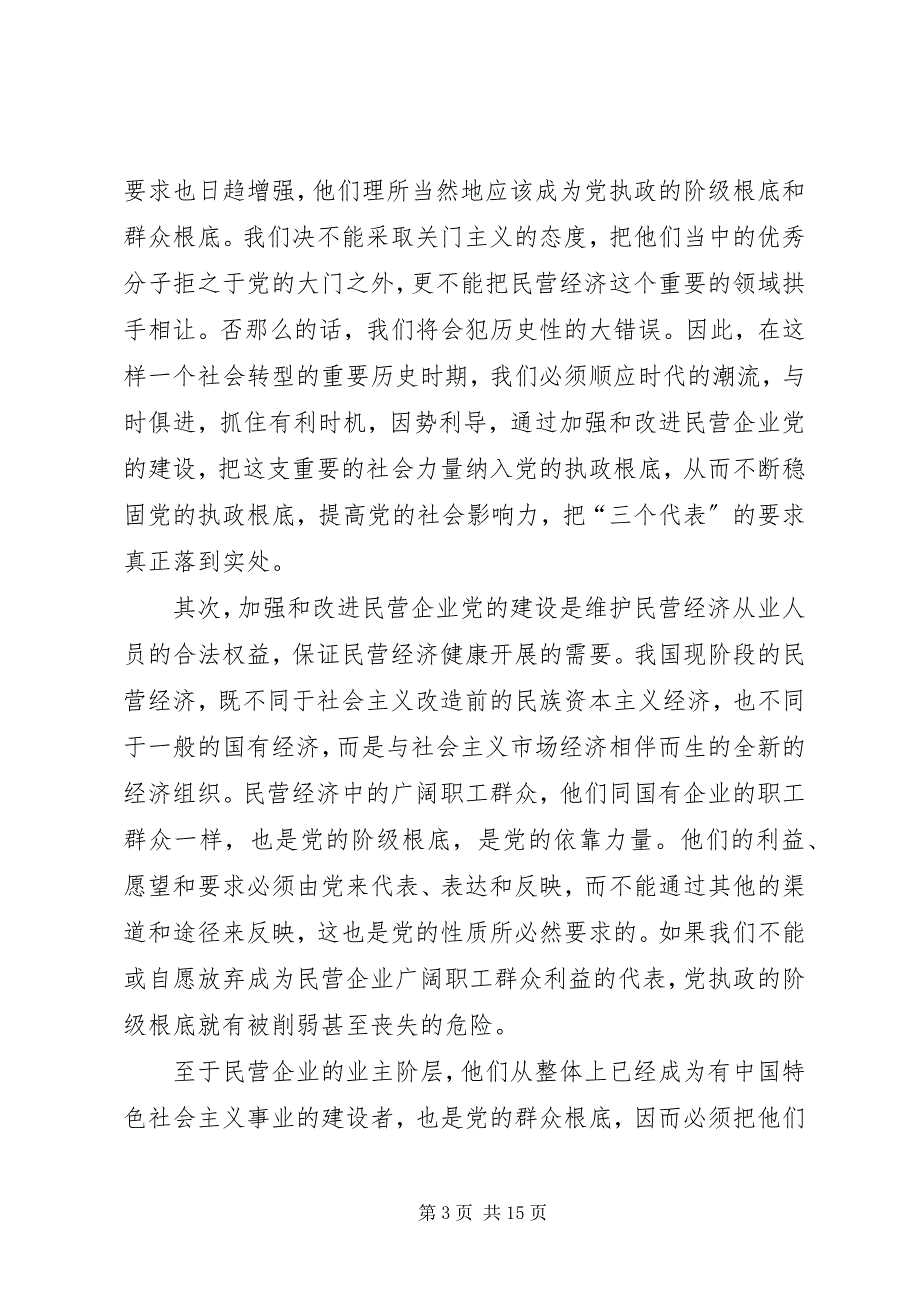 要求也日趋增强，他们理所当然地应该成为党执政的阶级根底和
群众根底。我们决不能采取关门主义的态度，把他们当中的优秀
分子拒之于党的大门之外，更不能把民营经济这个重要的领域拱
手相让。否那么的话，我们将会犯历史性的大错误。因此，在这
样一个社会转型的重要历史时期，我们必须顺应时代的潮流，与
时俱进，抓住有利时机，因势利导，通过加强和改进民营企业党
的建设，把这支重要的社会力量纳入党的执政根底，从而不断稳
固党的执政根底，提高党的社会影响力，把“三个代表〞的要求
真正落到实处。
其次，加强和改进民营企业党的建设是维护民营经济从业人
员的合法权益，保证民营经济健康开展的需要。我国现阶段的民
营经济，既不同于社会主义改造前的民族资本主义经济，也不同
于一般的国有经济，而是与社会主义市场经济相伴而生的全新的
经济组织。民营经济中的广阔职工群众，他们同国有企业的职工
群众一样，也是党的阶级根底，是党的依靠力量。他们的利益、
愿望和要求必须由党来代表、表达和反映，而不能通过其他的渠
道和途径来反映，这也是党的性质所必然要求的。如果我们不能
或自愿放弃成为民营企业广阔职工群众利益的代表，党执政的阶
级根底就有被削弱甚至丧失的危险。
至于民营企业的业主阶层，他们从整体上已经成为有中国特
色社会主义事业的建设者，也是党的群众根底，因而必须把他们
第 3 页 共 15 页